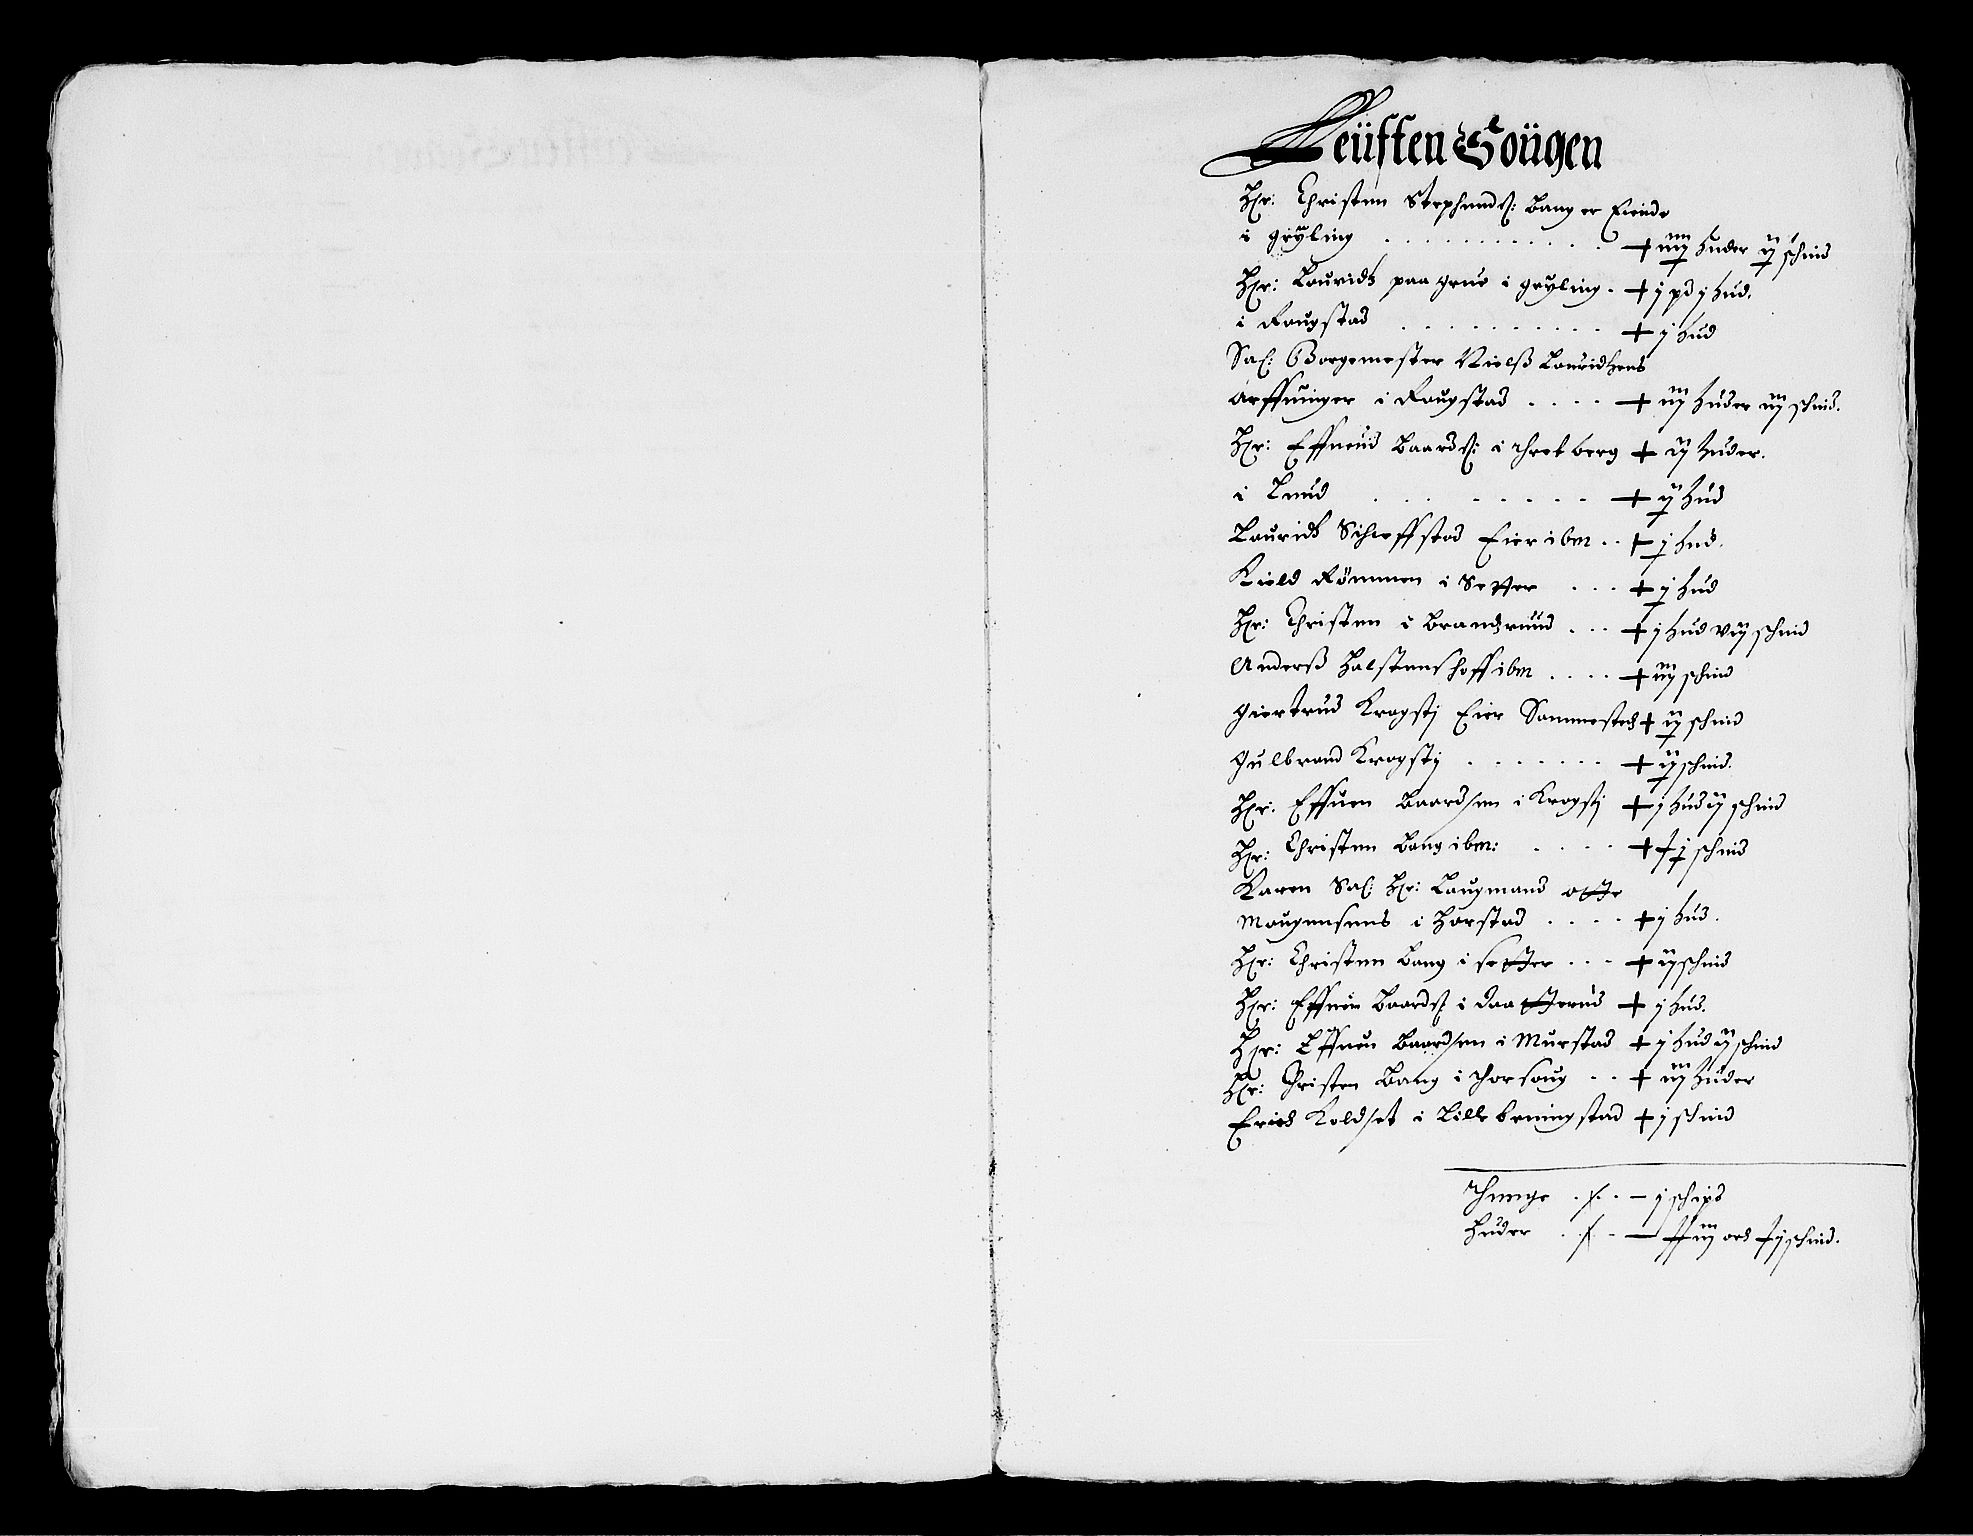 Leüften Sougen
Hr: Christen Stephends: Bang er Eiende
i Gryling . . . . . . . . . . + iiij huder ij schind
Hr: Lauridtz paa grue i gryling . + j pd j hud.
i Rougstad . . . . . . . . . . + j hud
Sal: Borgemester Nielß Lauridtzens
arffuinger i Rougstad . . . . + iij huder iij schind.
Hr: Effuend Baardß: i Thretberg + ij huder.
i Lund . . . . . . . . + ij hud
Lauridtz Schieffstad Eier ibm . . + j hud.
Kield Römmen i Setter . . . + j hud
Hr: Christen i Brandzruud . . . + j hud vij schind
Anderß Halstenshoff ibm . . . . + iij schind
Giertrud Krogstj Eier Sammested + ij schind
Gulbrand Krogstij . . . . . . . + ij schind.
Hr: Effuen Baardsen i Krogstj + j hud ij schind
Hr: Christen Bang ibm: . . . . + j schind
Karen Sal: Hr: Laugmand
Mougensens i Harstad . . . . + j hud.
Hr: Christen Bang i setter . . . + ij schind
Hr: Effuen Baardß i Daatterud + j hud.
Hr: Effuen Baardsen i Murstad + j hud ij schind
Hr: Christen Bang i Thorsoug . . + iij huder
Erich Koldset i Lille bruningstad + j schind
Thunge . . . — j schipd
Huder . . — iij och j schind.